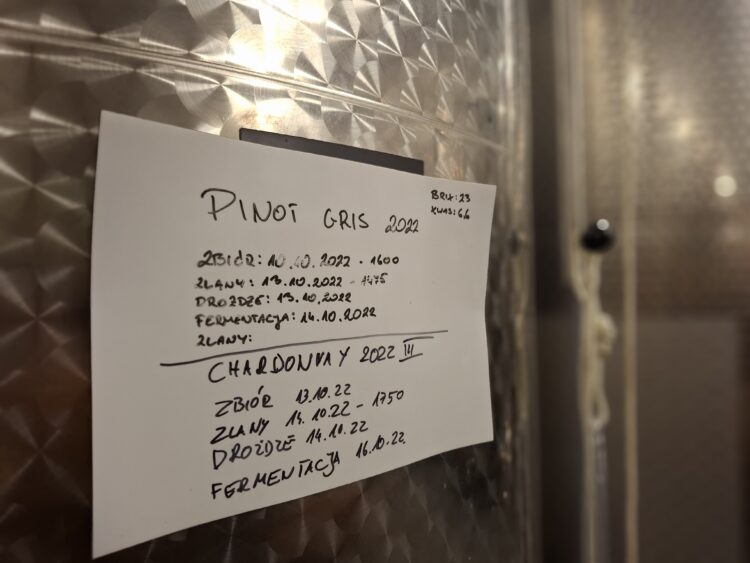 PINOT GRIS 2022
BRIX: 23
KWAS: 6,6
ZBIÓR: 10.10.2022 - 1600
ZLANY: 13.10.2022 - 1475
DROŻDŻE: 13.10.2022
FERMENTACJA: 14.10.2022
ZLANY:
CHARDONNAY 2022 III
ZBIÓR 13.10.22
ZLANY 14.10.22 - 1750
DROŻDŻE 14.10.22
FERMENTACJA 16.10.22